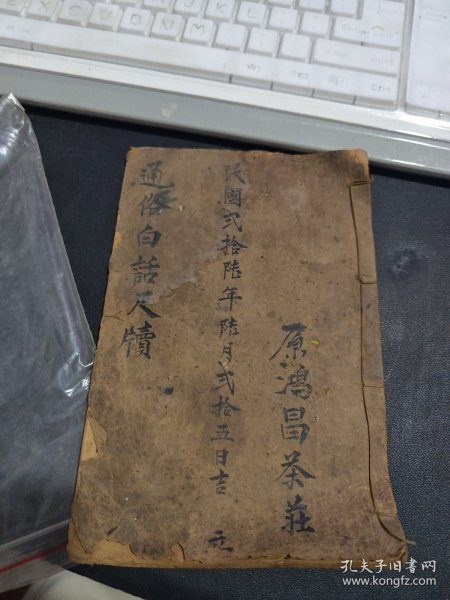 原鴻昌茶莊
民國弍拾陸年陸月弍拾五日吉立
通俗白話尺牘
Shift
Ctrl
孔夫子旧书网
www.kongfz.com